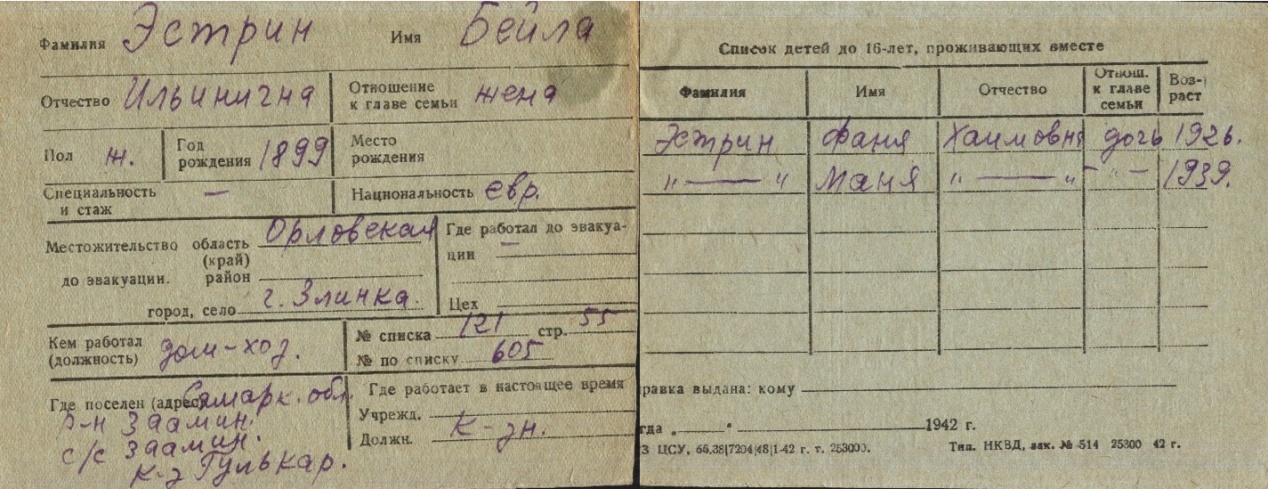 Фамилия Эстрин Имя Бейла
Отчество Ильинична Отношение к главе семьи жена
Пол ж. Год рождения 1899 Место рождения
Специальность и стаж — Национальность евр.
Местожительство до эвакуации. область (край) Орловская
район
город, село г. Злинка.
Где работал до эвакуации —
Цех
Кем работал (должность) дом-хоз.
№ списка 121 стр. 55
№ по списку 605
Где поселен (адрес) Самарк. обл.
р-н Заамин.
с/с Заамин.
к-з Гулькар.
Где работает в настоящее время
Учрежд.
Должн. к-зн.
Список детей до 16-лет, проживающих вместе
Фамилия Имя Отчество Отнош. к главе семьи Возраст
Эстрин Фаня Хаимовна дочь 1926.
"—" Маня "—" -"- 1939.
равка выдана: кому
гда „ " 1942 г.
З ЦСУ, 65,38|7204|48|1-42 г. т. 253000. Тип. НКВД, зак. № 514 25300 42 г.